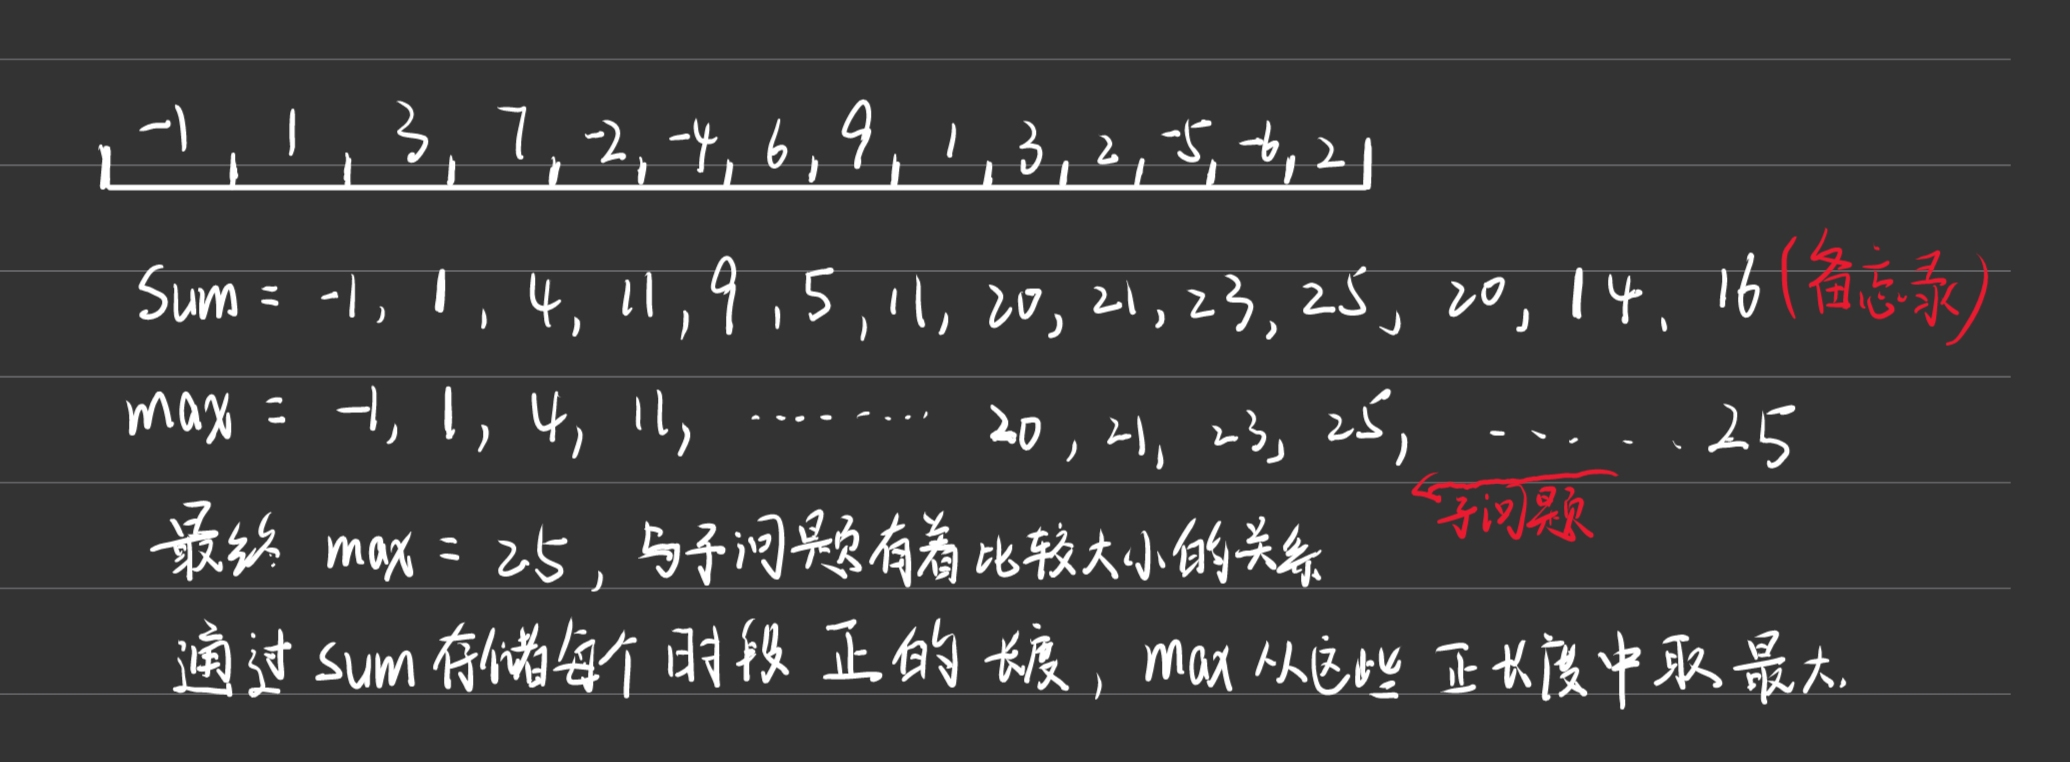 -1, 1, 3, 7, -2, -4, 6, 9, 1, 3, 2, -5, -6, 2
Sum = -1, 1, 4, 11, 9, 5, 11, 20, 21, 23, 25, 20, 14, 16 (备忘录)
max = -1, 1, 4, 11, ········ 20, 21, 23, 25, ······ 25
子问题
最终 max = 25, 与子问题有着比较大小的关系
通过 sum 存储每个时段正的长度, max 从这些正长度中取最大.